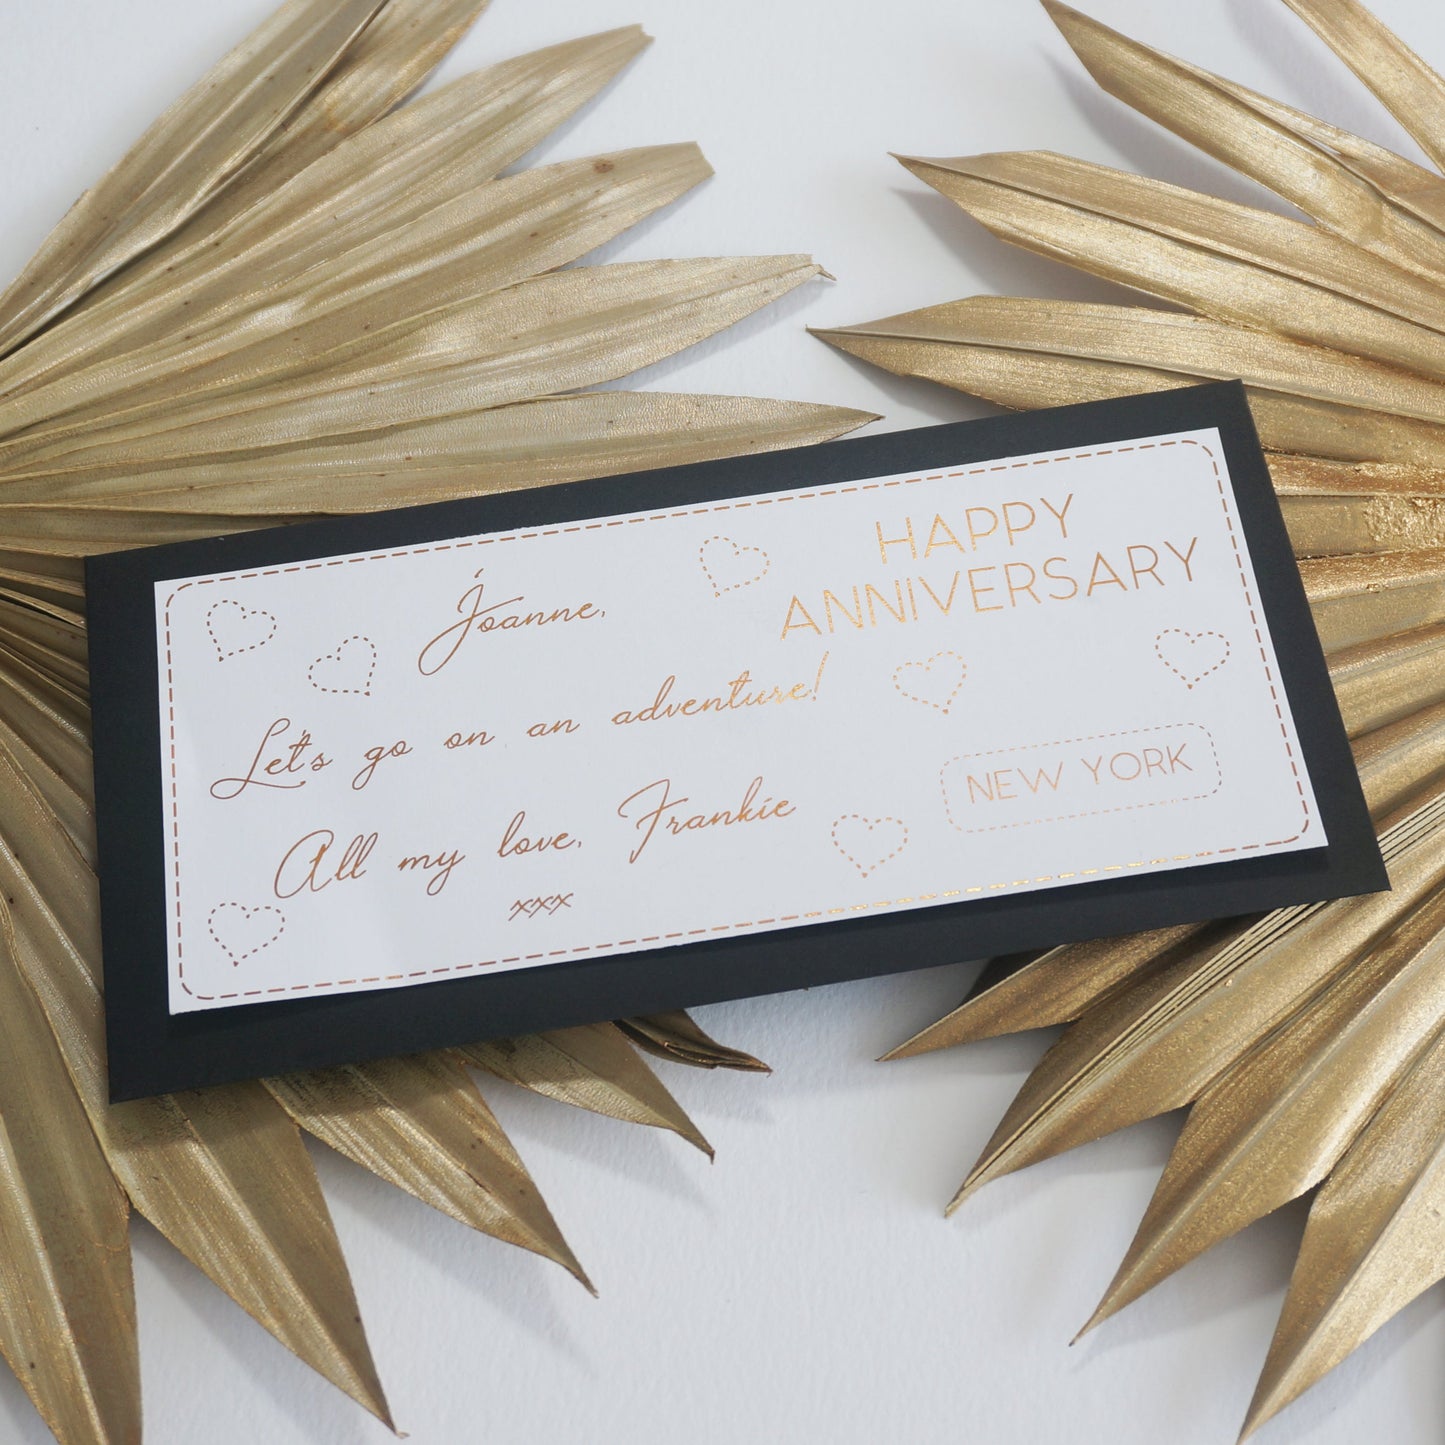 Joanne,
Let's go on an adventure!
All my love, Frankie
xxx
HAPPY
ANNIVERSARY
NEW YORK